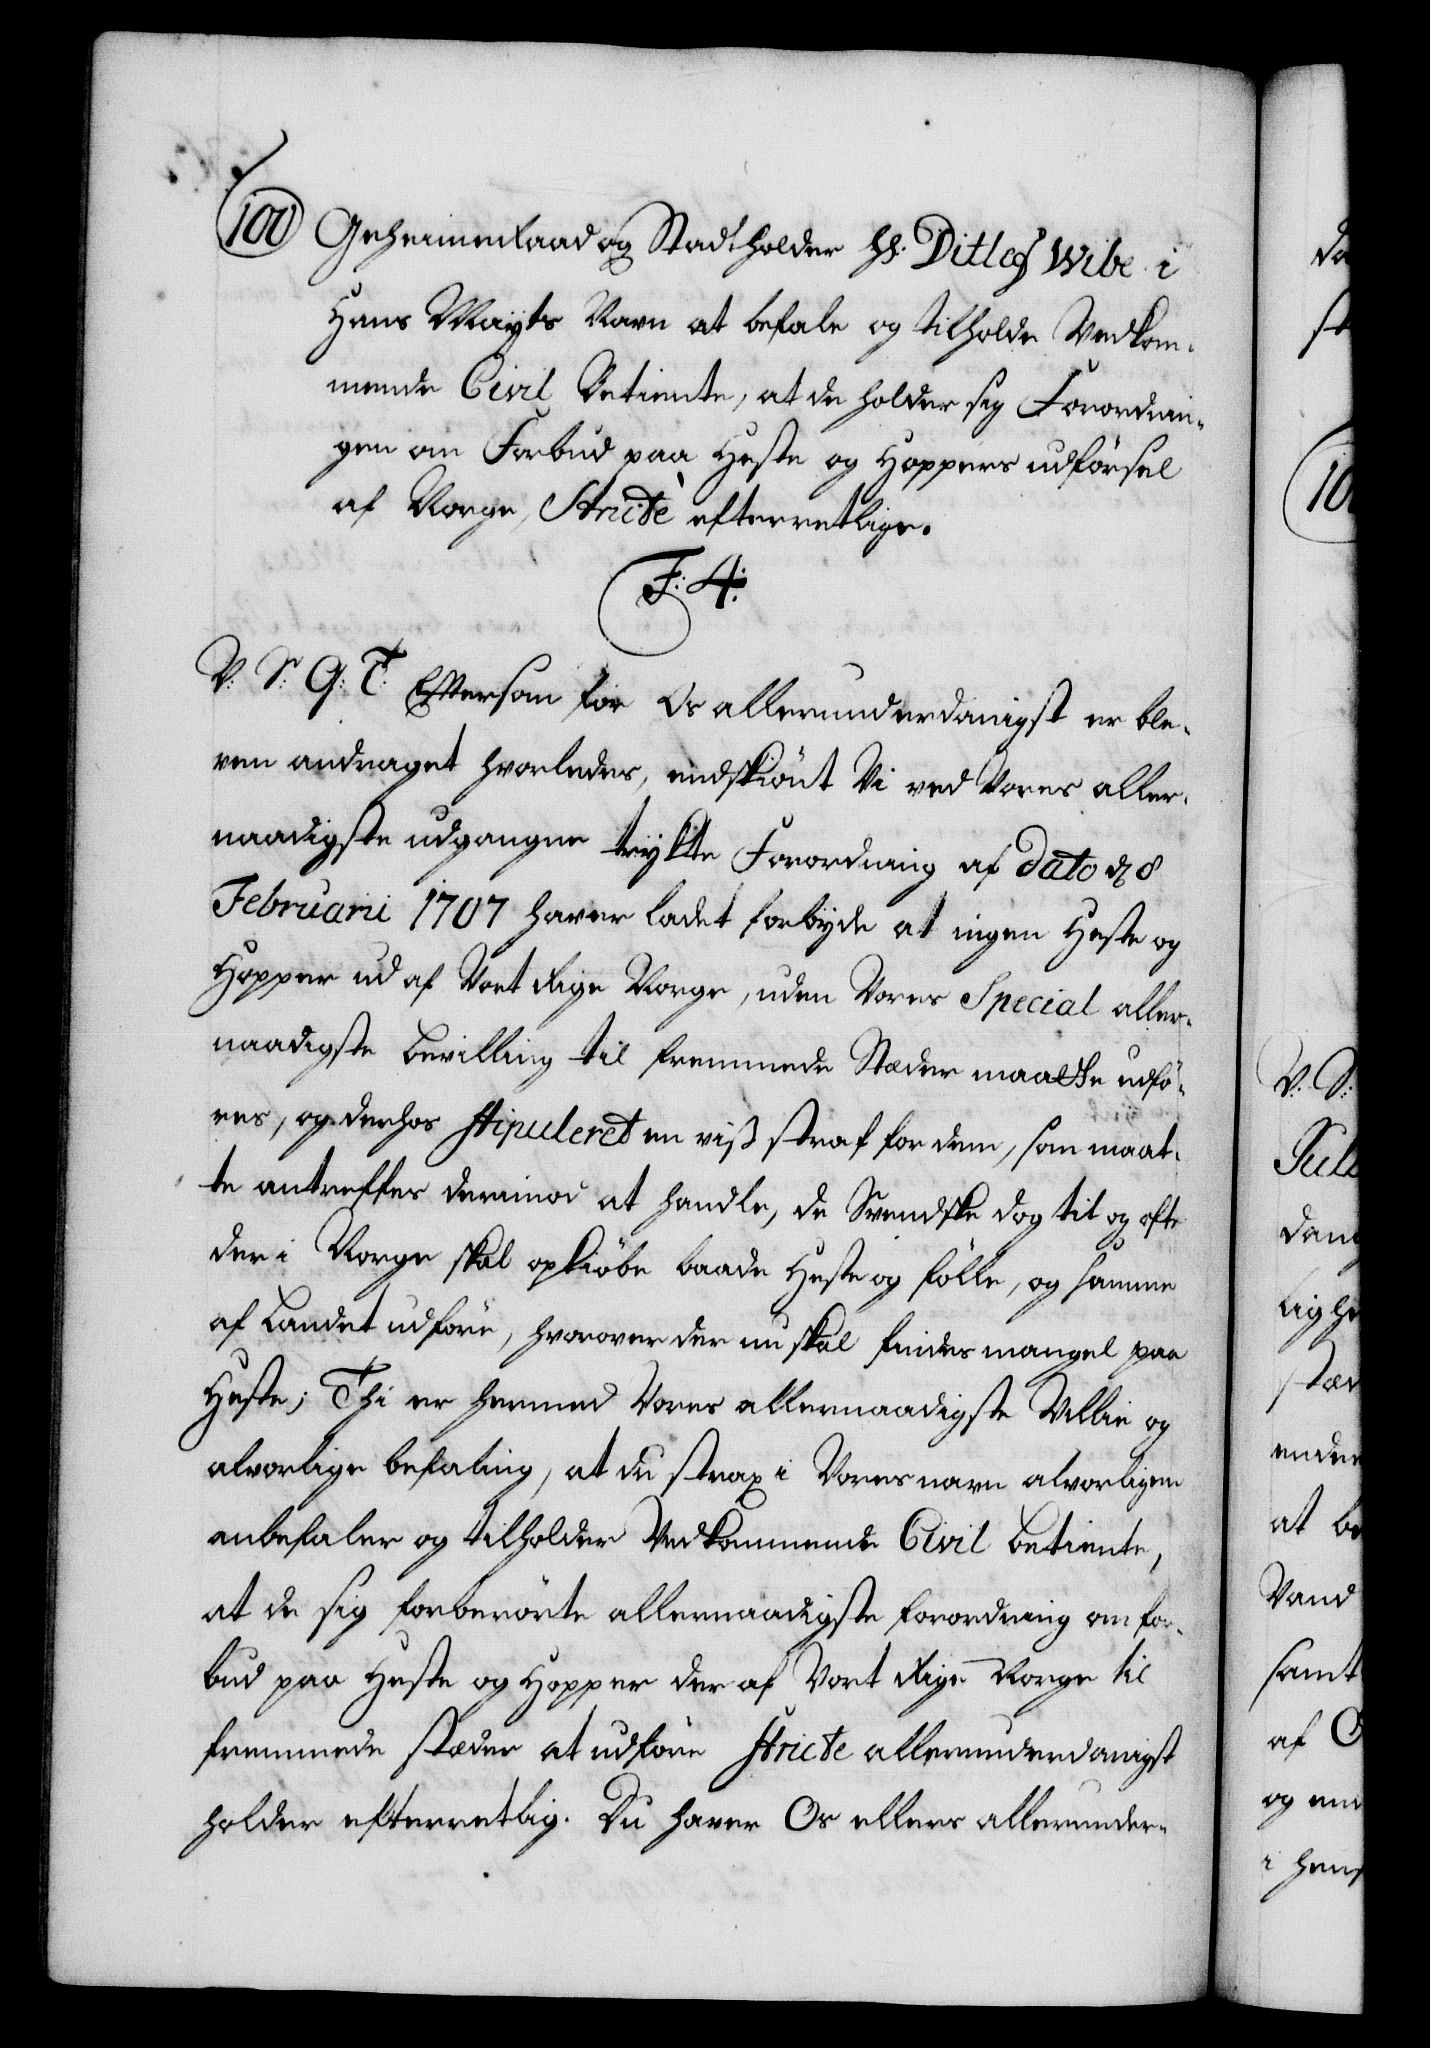 100 Geheimeraad og Stadtholder Hr. Ditlef Wibe i
Hans Mayts Navn at befale og tilholde Vedkom-
mende Civil Betiente, at de holder sig Forordnin-
gen om Forbud paa Heste og Hoppers udförsel
af Norge, Stricté efterretlige.
F: 4:
V: S: G: T: Eftersom for Os allerunderdanigst er ble-
ven andraget hvorledes, endskiönt Vi ved Vores aller-
naadigste udgangne trykte Forordning af dato d 8
Februarii 1707 haver ladet forbyde at ingen Heste og
Hopper ud af Vort Rige Norge, uden Vores Special aller-
naadigste bevilling til fremmede Stæder maatte udfö-
res, og derhos stipuleret en viss straf for dem, som maat-
te antreffes derimod at handle, de Svendske dog tit og ofte
der i Norge skal opkiöbe baade Heste og fölle, og samme
af Landet udföre, hvorover der nu skal findes mangel paa
Heste; Thi er hermed Vores allernaadigste Villie og
alvorlige befaling, at du strax i Vores navn alvorligen
anbefaler og tilholder Vedkommende Civil betiente,
at de sig forberörte allernaadigste forordning om for-
bud paa Heste og Hopper der af Vort Rige Norge til
fremmede stæder at udföre stricte allerunderdanigst
holder efterretlig. Du haver Os ellers allerunder-
V: S:
dan
at be
Vand
samt
af
og
i hans